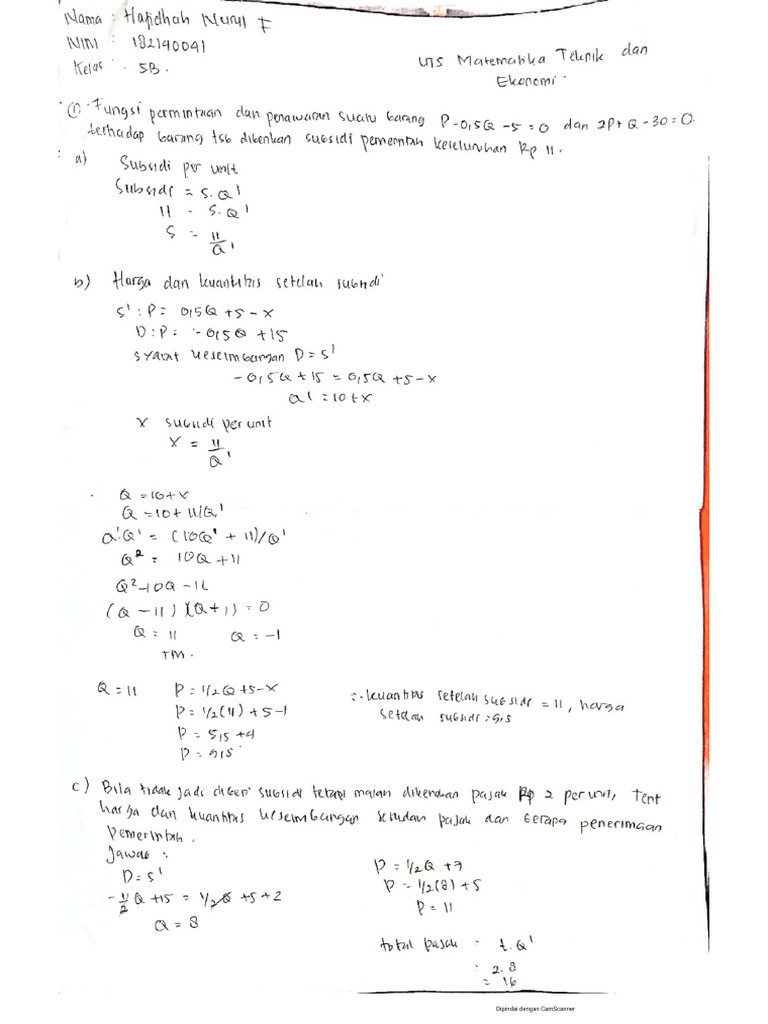 Nama : Hafidhah Nurul F
NIM : 182140041
Kelas : 5B.
UTS Matematika Teknik dan
Ekonomi.
① Fungsi permintaan dan penawaran suatu barang P-0,5Q-5=0 dan 2P+Q-30=0.
terhadap barang tsb dikenkan subsidi pemerintah keseluruhan Rp 11.
a) Subsidi per unit
Subsidi = S.Q'
11 = S.Q'
S = 11/Q'
b) Harga dan kuantitas setelah subsidi
S' : P = 0,5Q + 5 - x
D : P = -0,5Q + 15
syarat keseimbangan D = S'
-0,5Q + 15 = 0,5Q + 5 - x
Q' = 10 + x
x subsidi per unit
x = 11/Q'
Q = 10 + x
Q = 10 + 11/Q'
Q'.Q' = (10Q' + 11)/Q'
Q² = 10Q + 11
Q² - 10Q - 11
(Q - 11)(Q + 1) = 0
Q = 11 Q = -1
TM.
Q = 11 P = 1/2Q + 5 - x
P = 1/2(11) + 5 - 1
P = 5,5 + 4
P = 9,5
∴ kuantitas setelah subsidi = 11, harga
setelah subsidi = 9,5
c) Bila tidak jadi diberi subsidi tetapi malah dikenakan pajak Rp 2 per unit, Tent
harga dan kuantitas keseimbangan setelah pajak dan berapa penerimaan
pemerintah.
Jawab :
D = S'
-1/2 Q + 15 = 1/2 Q + 5 + 2
Q = 8
P = 1/2 Q + 7
P = 1/2(8) + 5
P = 11
total pajak = t.Q'
: 2.8
= 16
Dipindai dengan CamScanner